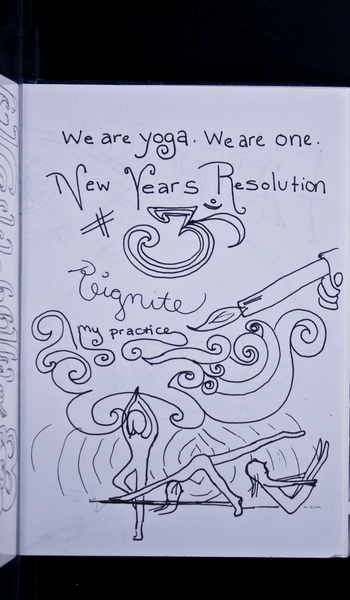 We are yoga. We are one.
New Years Resolution
# 3
Reignite
my practice